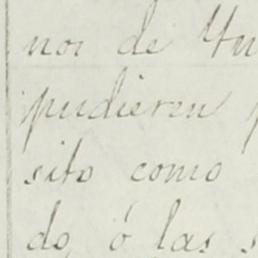 nos de Yn
pudieren p
sito como
do, ó las s